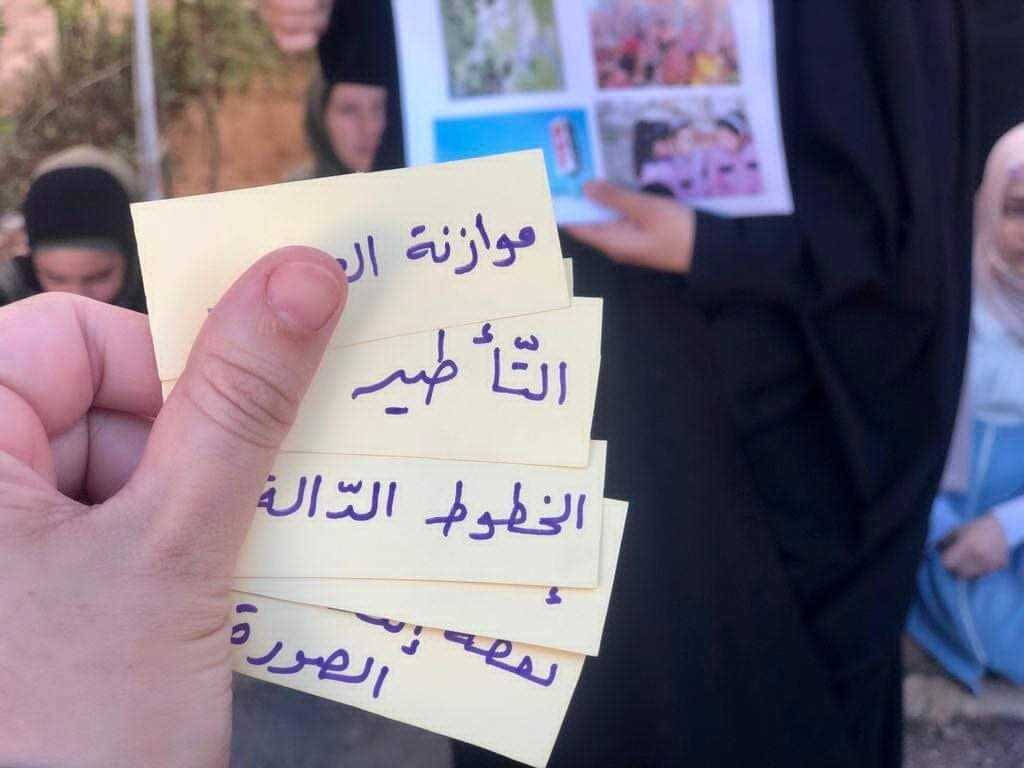 موازنة
التّأطير
الخطوط الدّالة
الصورة